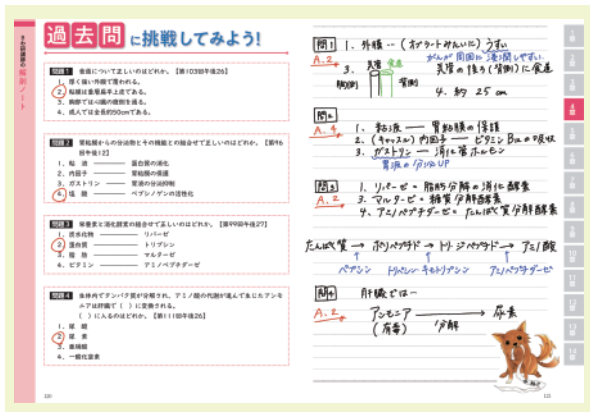 さわ研講師の解剖ノート
過去問に挑戦してみよう!
問題1 食道について正しいのはどれか。【第103回午後26】
1. 厚く強い外膜で覆われる。
2. 粘膜は重層扁平上皮である。
3. 胸部では心臓の腹側を通る。
4. 成人では全長約50cmである。
問題2 胃粘膜からの分泌物とその機能との組合せで正しいのはどれか。【第96
回午後12】
1. 粘液 ── 蛋白質の消化
2. 内因子 ── 胃粘膜の保護
3. ガストリン ── 胃液の分泌抑制
4. 塩酸 ── ペプシノゲンの活性化
問題3 栄養素と消化酵素の組合せで正しいのはどれか。【第99回午後27】
1. 炭水化物 ── リパーゼ
2. 蛋白質 ── トリプシン
3. 脂肪 ── マルターゼ
4. ビタミン ── アミノペプチダーゼ
問題4 生体内でタンパク質が分解され、アミノ酸の代謝が進んで生じたアンモ
ニアは肝臓で（ ）に変換される。
（ ）に入るのはどれか。【第111回午後26】
1. 尿酸
2. 尿素
3. 亜硝酸
4. 一酸化窒素
120
問1 1. 外膜‥（オブラートみたいに）うすい
A.2 がんが周囲に浸潤しやすい
3. 気管 食道 気管の後ろ（背側）に食道
腹側 背側
4. 約25cm
問2
A.4 1. 粘液 ── 胃粘膜の保護
2. （キャッスル）内因子 ── ビタミンB12の吸収
3. ガストリン ── 消化管ホルモン
胃液の分泌UP
問3 1. リパーゼ = 脂肪分解の消化酵素
A.2 3. マルターゼ = 糖質分解酵素
4. アミノペプチダーゼ = たんぱく質分解酵素
たんぱく質 → ポリペプチド → トリ・ジペプチド → アミノ酸
ペプシン トリプシン キモトリプシン アミノペプチダーゼ
問4 肝臓では‥
A.2 アンモニア → 尿素
（有毒） 分解
121
1章
2章
3章
4章
5章
6章
7章
8章
9章
10章
11章
12章
13章
14章